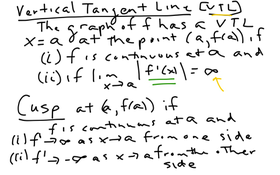 Vertical Tangent Line [VTL]
The graph of f has a VTL
x = a at the point (a, f(a)), if
(i) f is continuous at a and
(ii) if lim x→a |f'(x)| = ∞
Cusp at (a, f(a)) if
f is continuous at a and
(i) f' → ∞ as x → a from one side
(ii) f' → -∞ as x → a from the other
side